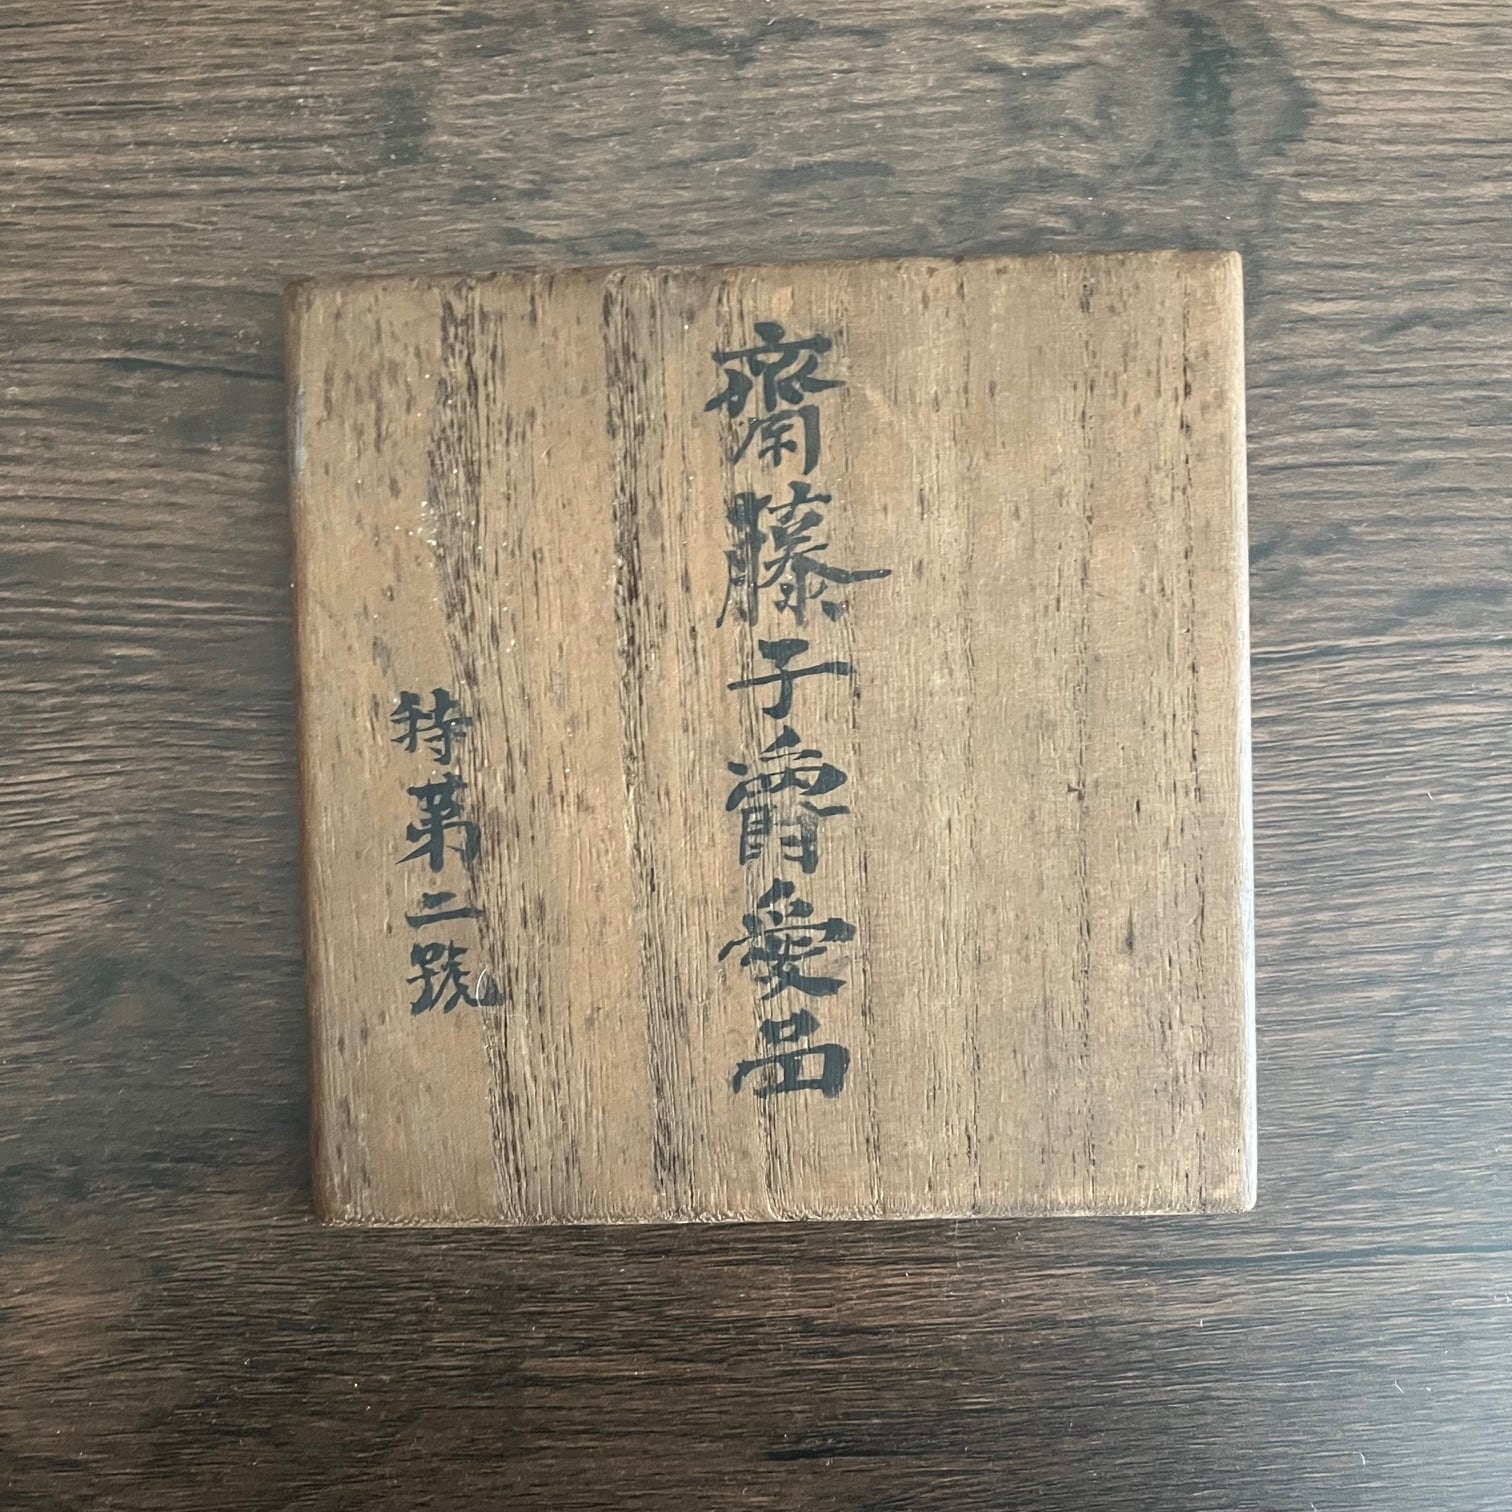 齋藤子爵愛品
特第二號